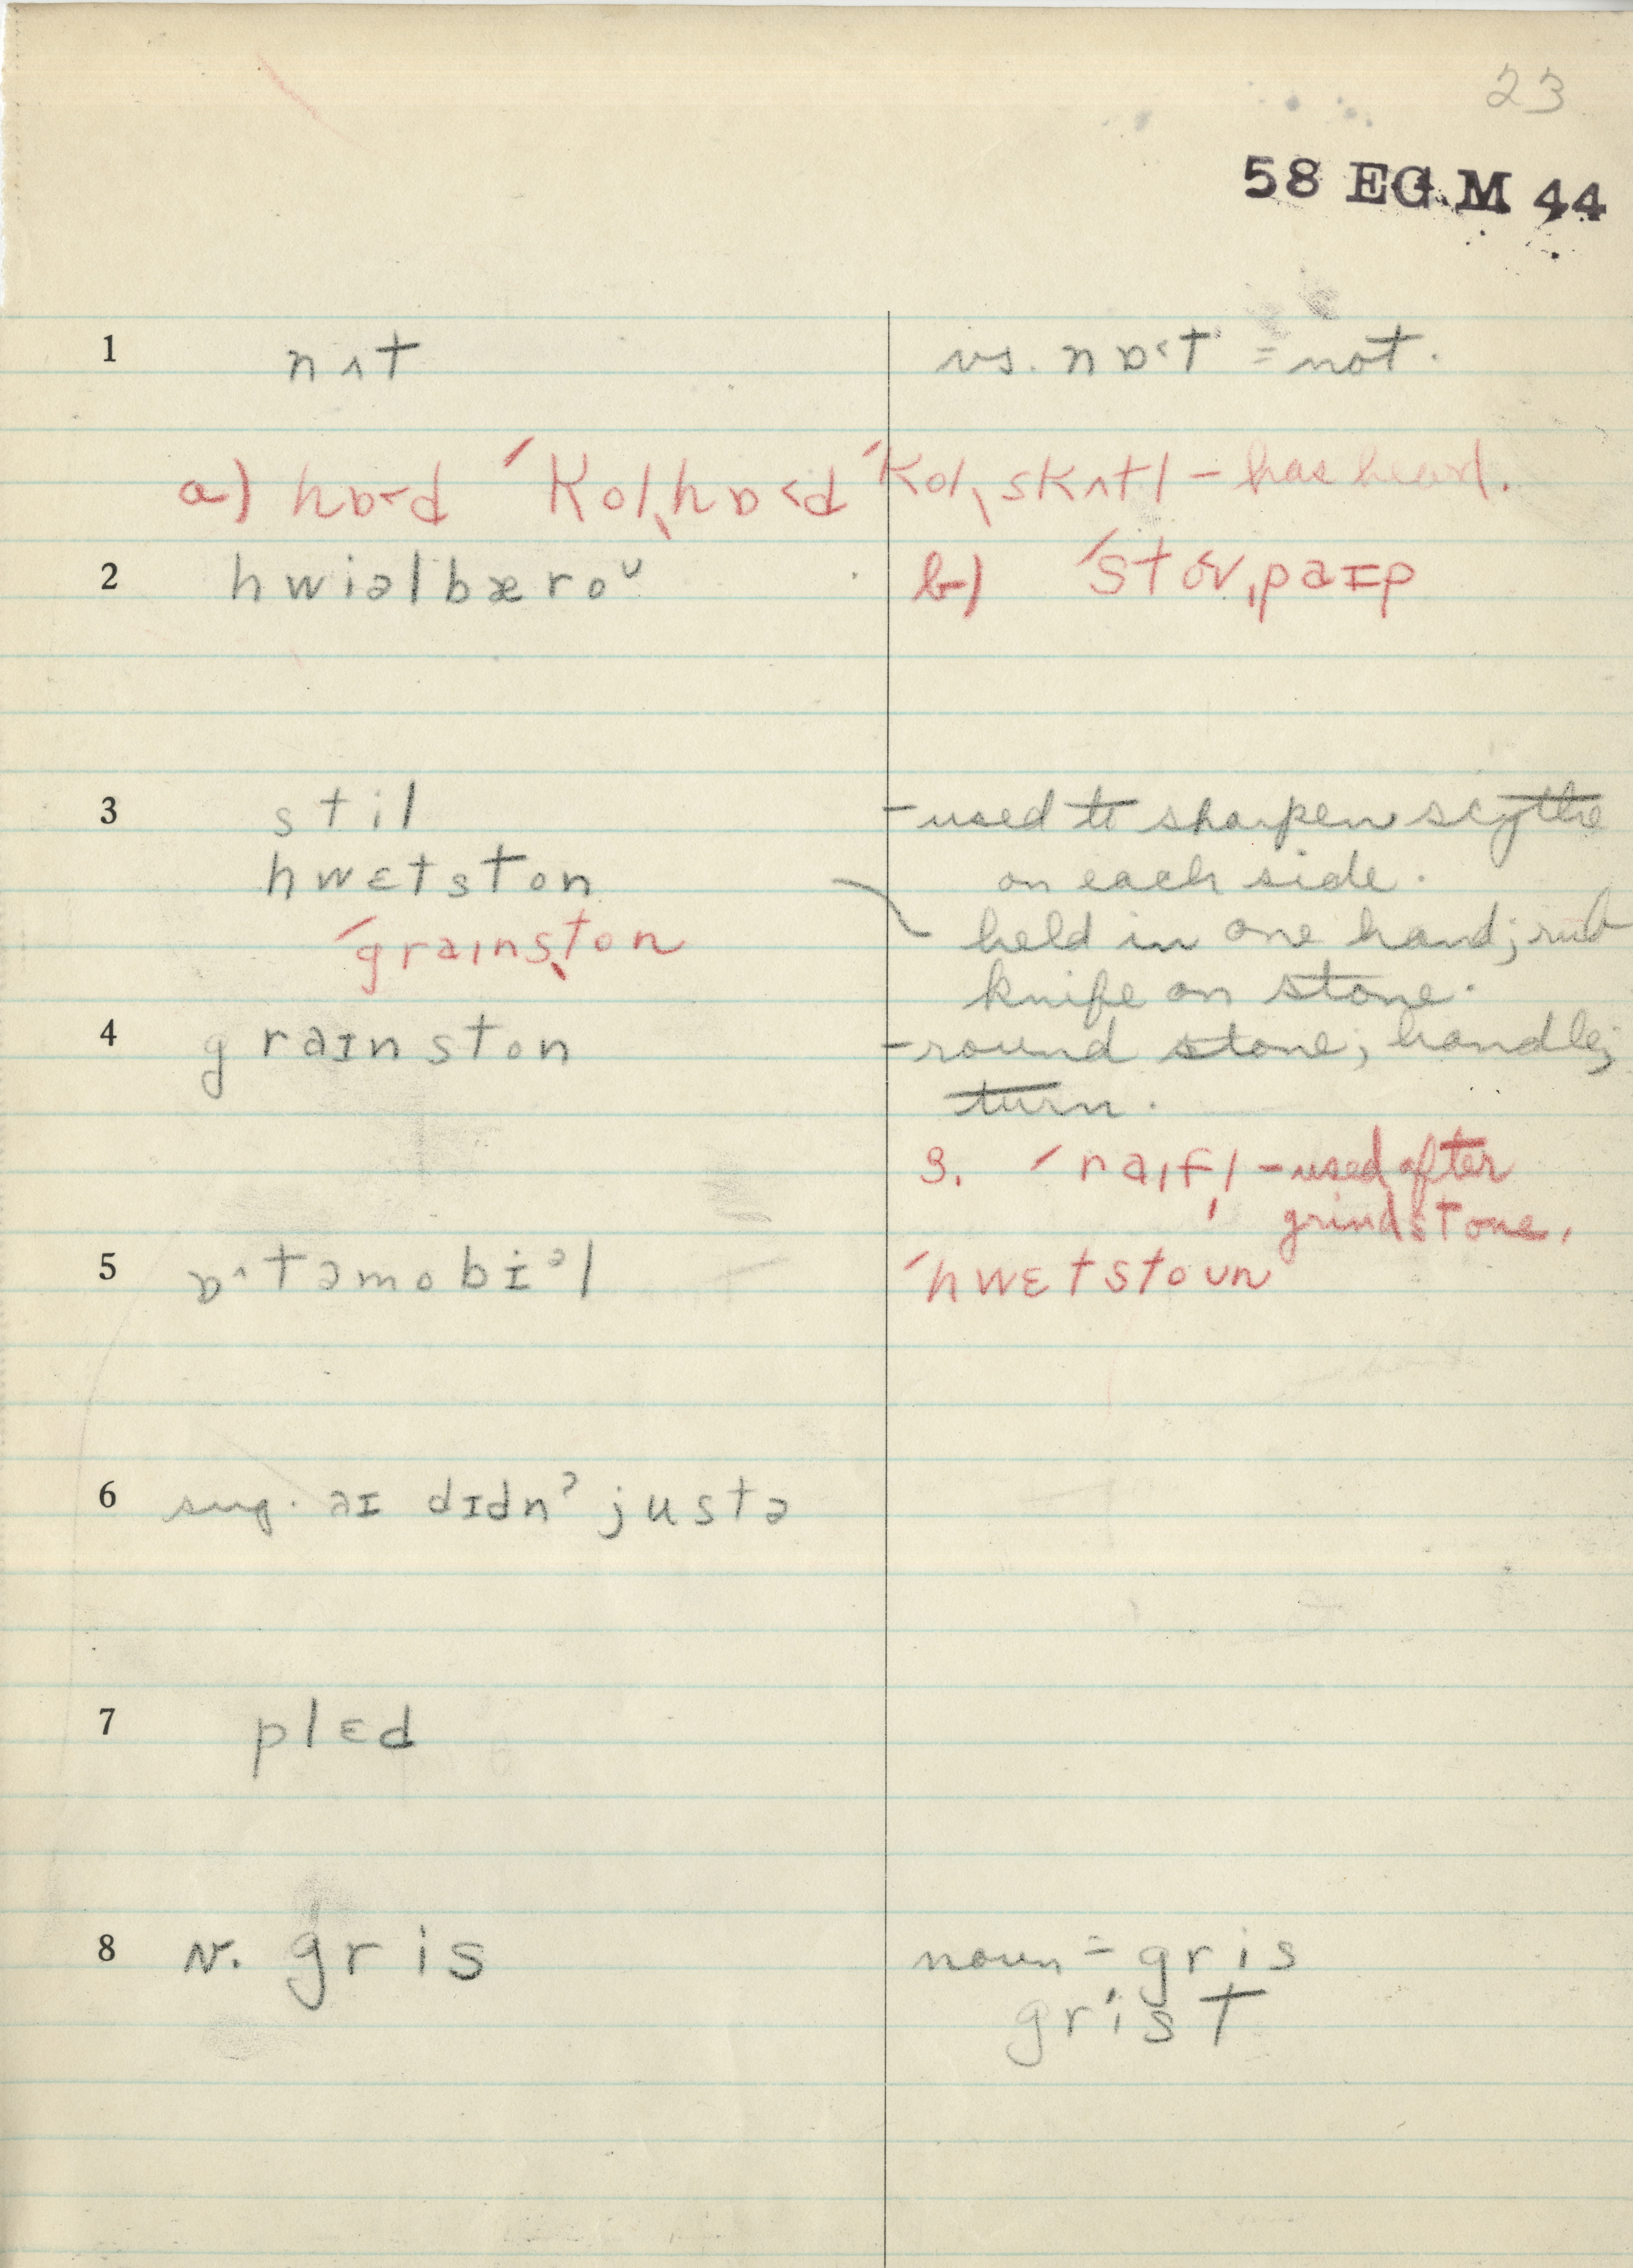 23
58 EG.M 44
1 nʌt vs. nɒ˂t = not.
a) hɒ˂d ˊkol,hɒ˂d ˊkol,skʌtl – has heard.
2 hwiəlbæroᵁ b) ˊstov,paɪp
3 stil – used to sharpen scythe
hwɛtston on each side.
ˊgraɪns,ton held in one hand; rub
knife on stone.
4 graɪnston – round stone; handle;
turn.
3. ˊraɪf,l – used after
grindstone.
5 ɒ^təmobiᵊl ˊhwɛtstoʊn
6 sug. aɪ dɪdnˀ justə
7 plɛd
8 N. gris noun = gris
grist